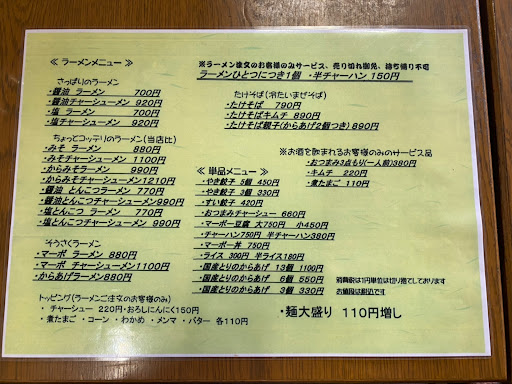 ≪ ラーメンメニュー ≫
さっぱりのラーメン
・醤油 ラーメン 700円
・醤油チャーシューメン 920円
・塩 ラーメン 700円
・塩チャーシューメン 920円
ちょっとコッテリのラーメン(当店比)
・みそ ラーメン 880円
・みそチャーシューメン 1100円
・からみそラーメン 990円
・からみそチャーシューメン1210円
・醤油 とんこつラーメン 770円
・醤油とんこつチャーシューメン990円
・塩とんこつ ラーメン 770円
・塩とんこつチャーシューメン 990円
そうさくラーメン
・マーボ ラーメン 880円
・マーボ チャーシューメン1100円
・からあげラーメン880円
トッピング(ラーメンご注文のお客様のみ)
・ チャーシュー 220円・おろしにんにく150円
・煮たまご ・コーン ・わかめ ・メンマ ・バター 各110円
※ラーメン注文のお客様のみサービス、売り切れ御免、持ち帰り不可
ラーメンひとつにつき1個 ・半チャーハン 150円
たけそば(冷たいまぜそば)
・たけそば 790円
・たけそばキムチ 890円
・たけそば親子(からあげ2個つき) 890円
※お酒を飲まれるお客様のみのサービス品
・おつまみ3点もり(一人前)380円
・キムチ 220円
・煮たまご 110円
≪ 単品メニュー ≫
・やき餃子 5個 450円
・やき餃子 3個 330円
・すい餃子 420円
・おつまみチャーシュー 660円
・マーボー豆腐 大750円 小450円
・チャーハン750円 半チャーハン380円
・マーボー丼 750円
・ライス 300円 半ライス180円
・国産とりのからあげ 13個 1100円
・国産とりのからあげ 6個 550円
・国産とりのからあげ 3個 330円
消費税は1円単位は切り捨てしております
お値段は税込です
・麺大盛り 110円増し